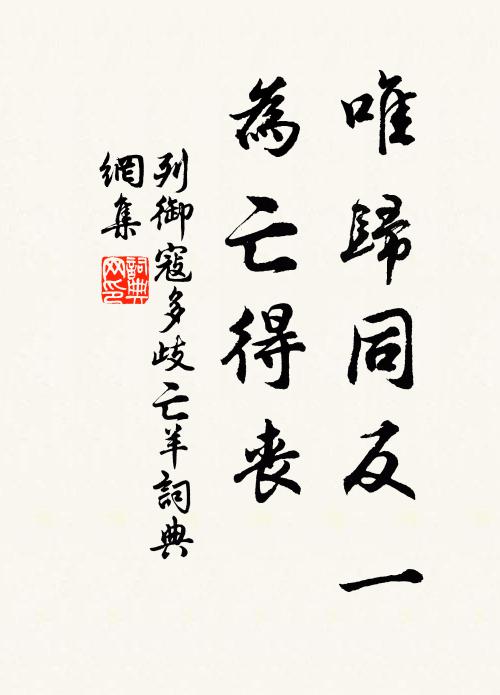 唯歸同反一
為亡得喪
列御寇多歧亡羊詞典
網集
詞典
網印